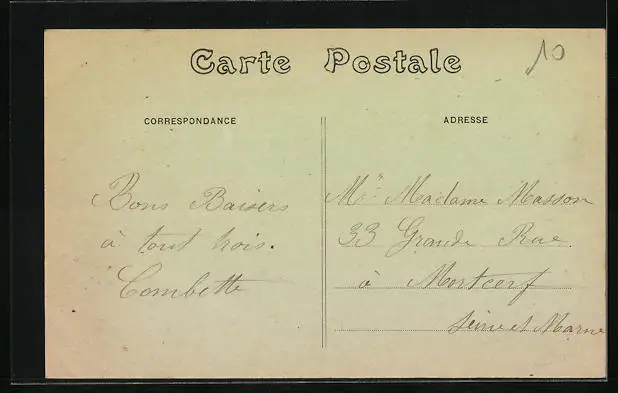 Carte Postale
10
CORRESPONDANCE
Bons Baisers
à tout trois.
Combette
ADRESSE
Mr Madame Masson
33 Grande Rue
à Mortcerf
Seine et Marne